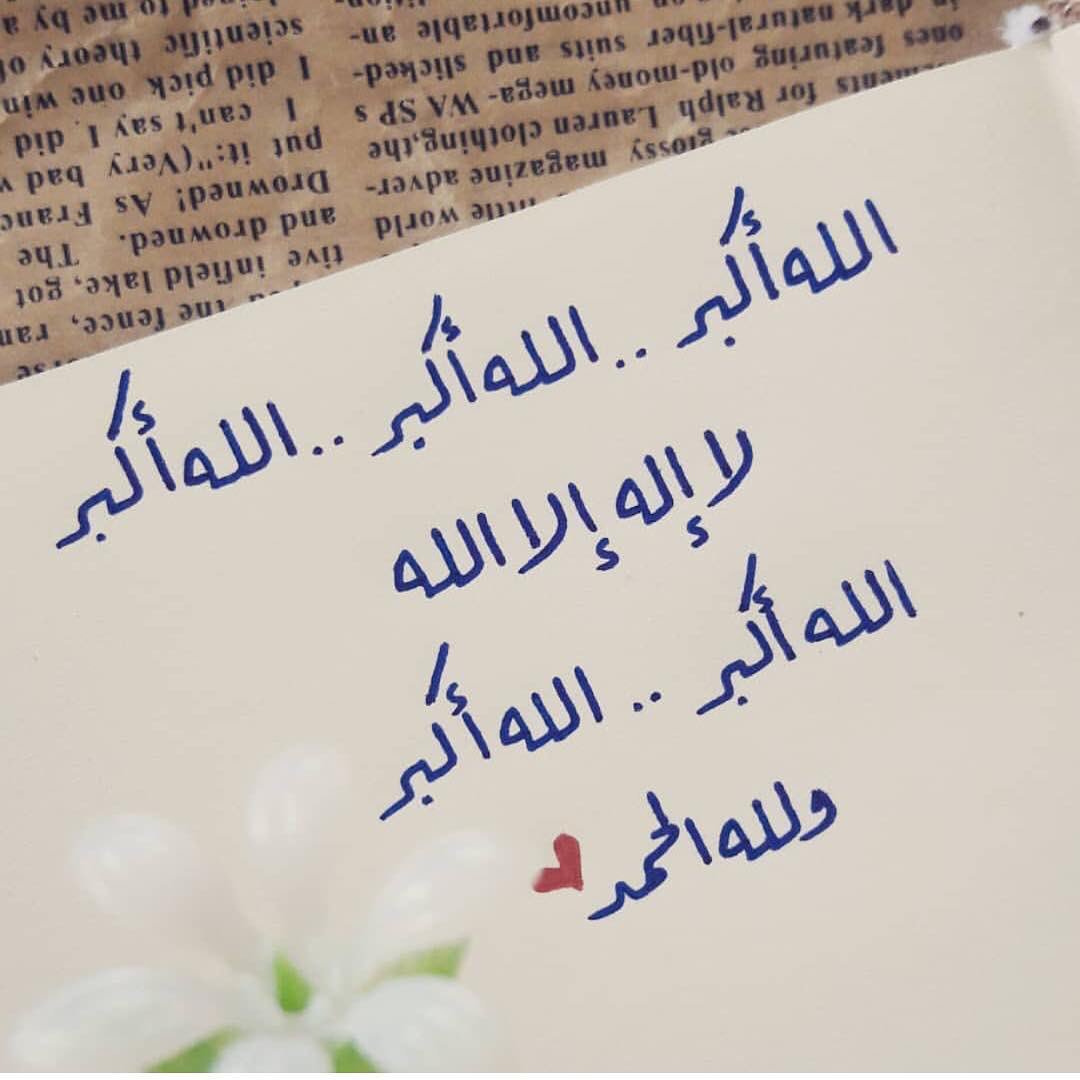 الله أكبر .. الله أكبر .. الله أكبر
لا إله إلا الله
الله أكبر .. الله أكبر
ولله الحمد
little world
glossy magazine adver-
for Ralph Lauren clothing,the
ones featuring old-money mega- WA SP s
in dark natural-fiber suits and slicked-
uncomfortable an-
the fence, ran
tive infield lake, got
and drowned. The
Drowned! As
put it:"(Very bad
I can't say I did
I did pick one
scientific theory of
to me by a